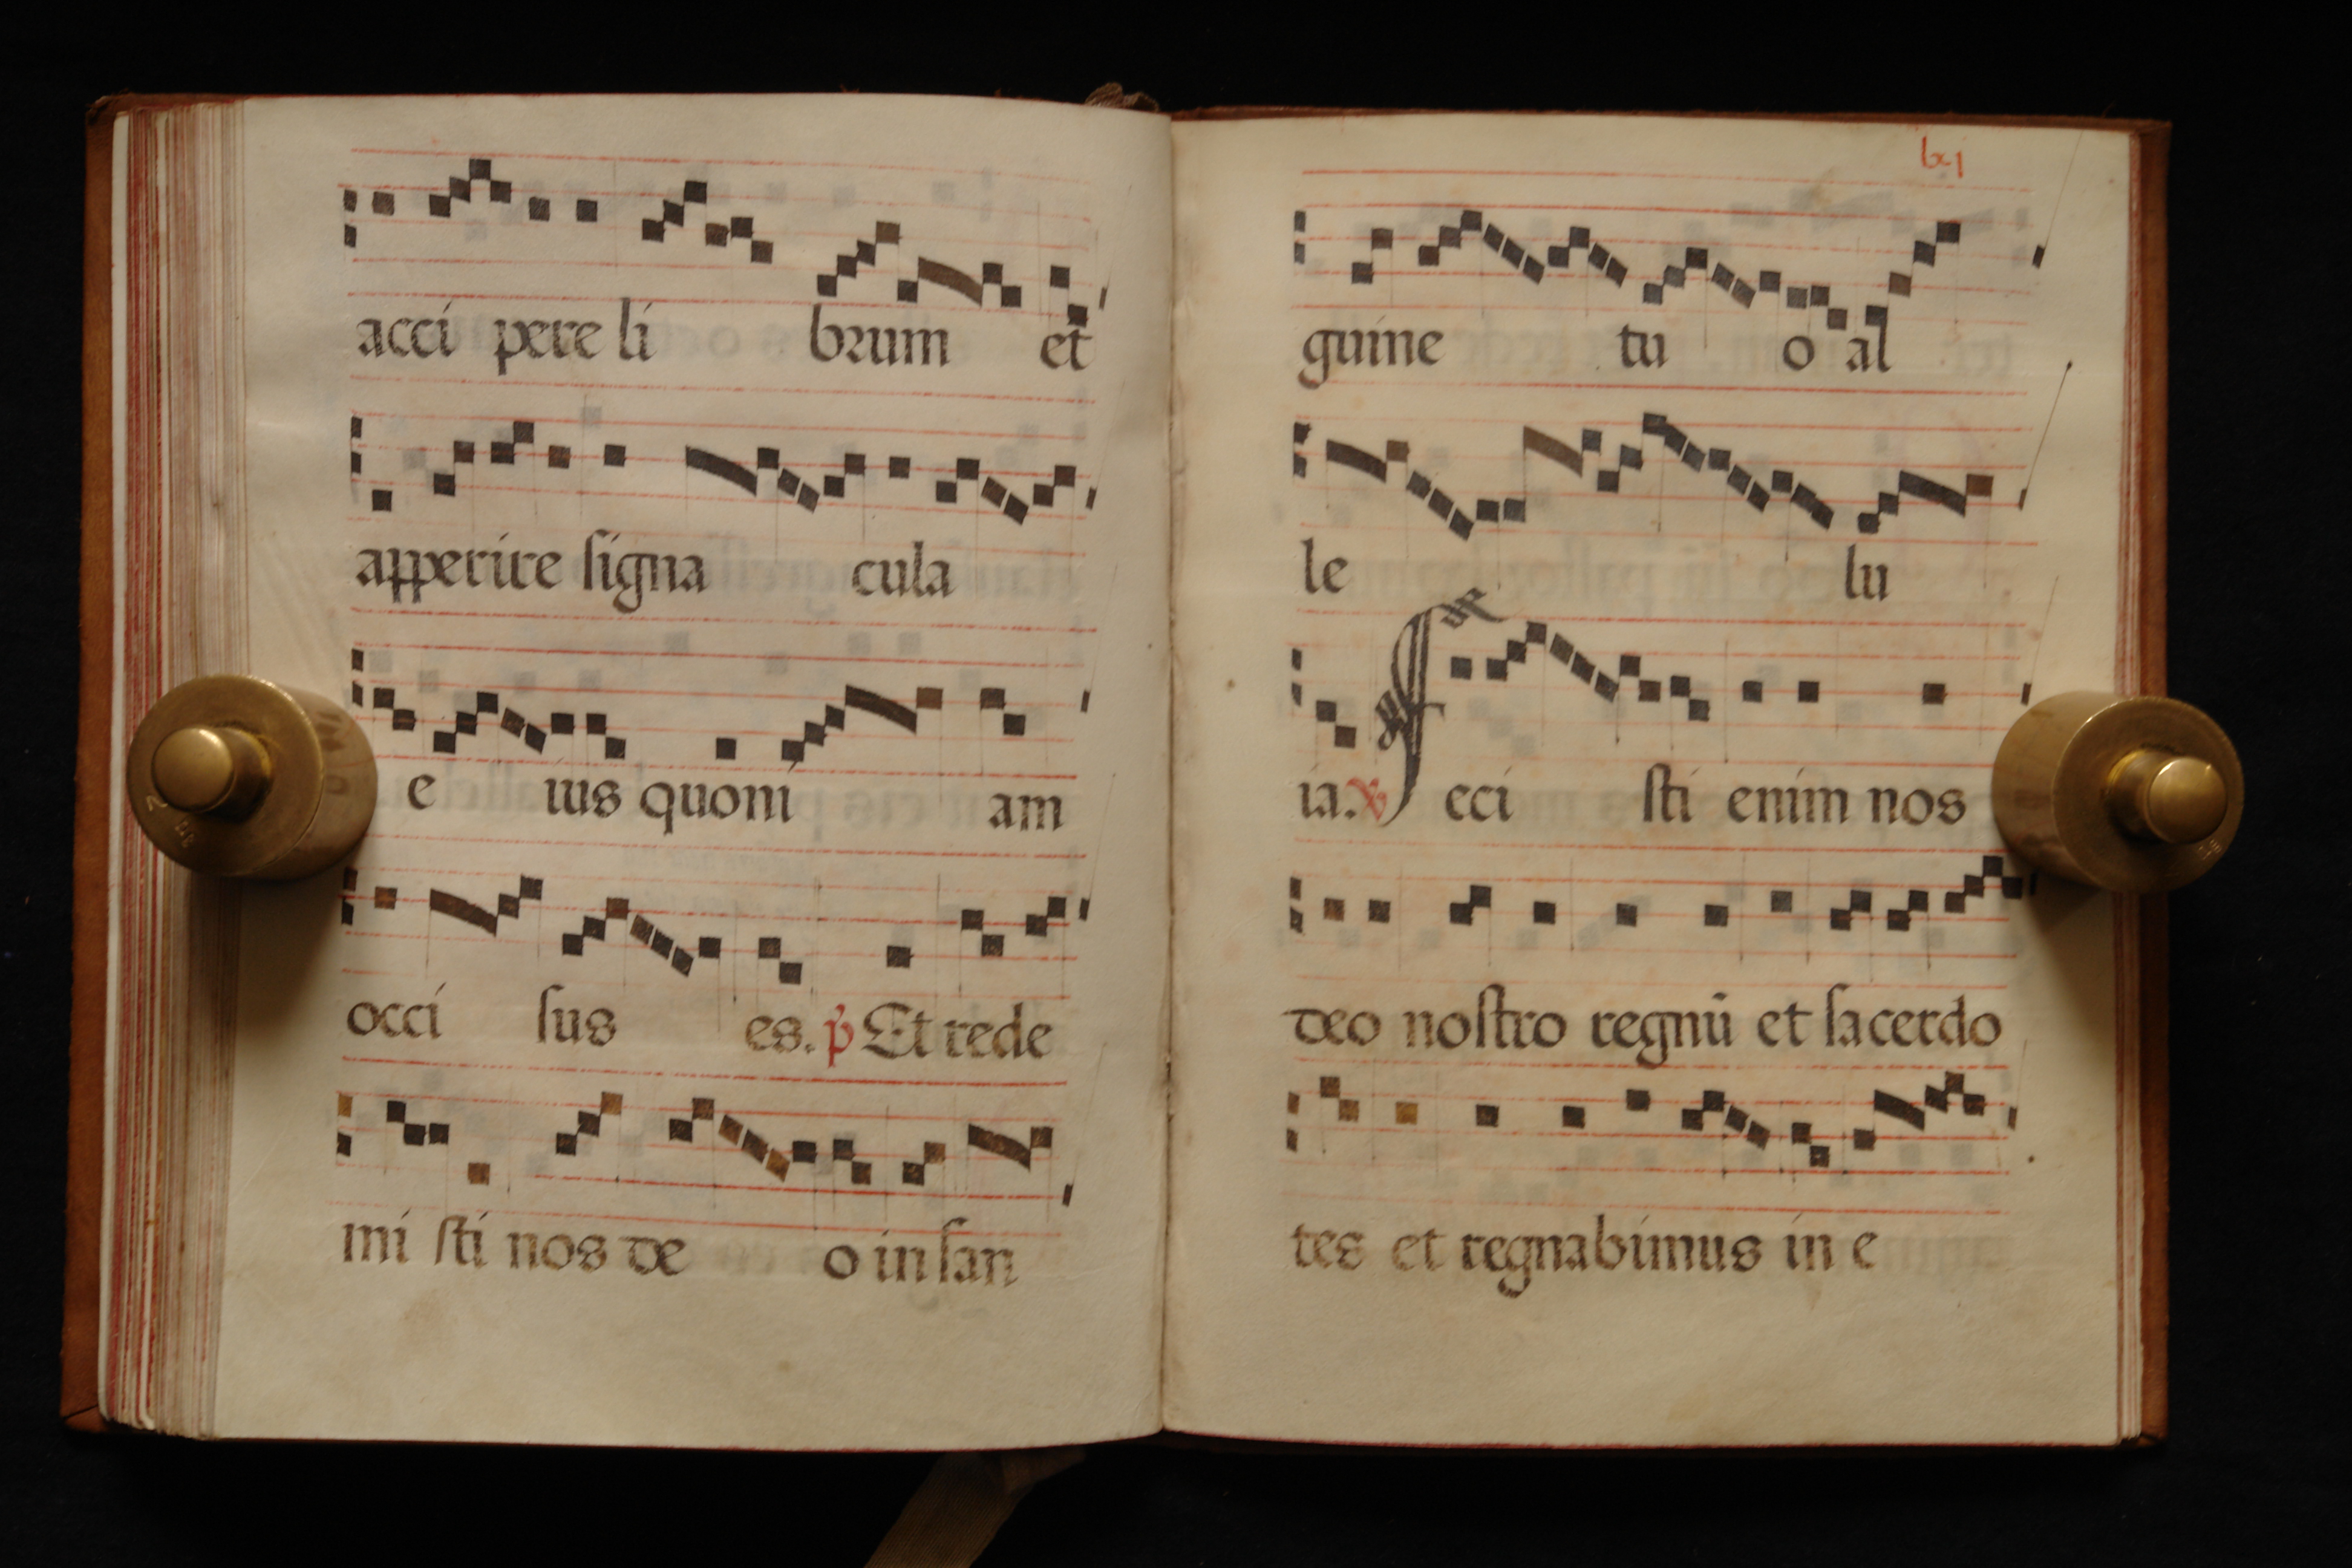 acci pere li brum et
apperire signa cula
e ius quoni am
occi sus es. p̃ Et rede
mi sti nos de o in san
lxj
guine tu o al
le lu
ia. ℣ Feci sti enim nos
deo nostro regnū et sacerdo
tes et regnabimus in e